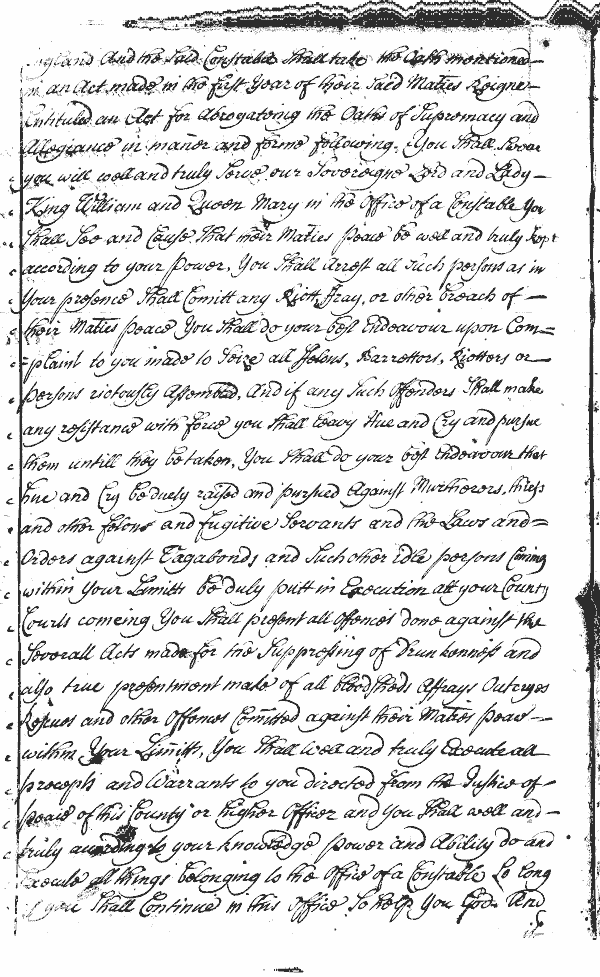 England And the Said Constable Shall take the Oath mentioned
in an Act made in the first Year of their Said Maties Reigne
Entituled an Act for Abrogateing the Oaths of Supremacy and
Allegiance in maner and forme following. You Shall Swear
you will well and truly Serve our Sovereigne Lord and Lady
King William and Queen Mary in the Office of a Constable You
Shall See and Cause that their Maties peace be well and truly kept
according to your power, You Shall Arrest all Such persons as in
Your presence Shall Comitt any Riott, fray, or other breach of
their Maties peace You Shall do your best Endeavour upon Com=
=plaint to you made to Seize all ffelons, Barrettors, Riotters or
persons riotously Assembled, And if any Such Offenders Shall make
any resistance with force you Shall Leavy Hue and Cry and pursue
them untill they be taken, You Shall do your best Endeavour that
hue and Cry be duely raysed and pursued Against Murtherers, thiefs
and other felons and fugitive Servants and the Laws and=
Orders against Vagabonds and Such other idle persons Coming
within Your Limitts be duly putt in Execution att your County
Courts comeing You Shall present all Offences done against the
Severall Acts made for the Suppressing of Drunkenness and
also true presentment make of all bloodsheds Affrays Outrages
Rescues and other Offences Comitted against their Maties peace
within Your Limitts, You Shall well and truly Execute all
precepts and Warrants to you directed from the Justice of
peace of this County or higher Officer and You Shall well and
truly according to your knowledge power and Ability do and
Execute all things belonging to the Office of a Constable So long
as you Shall Continue in this Office So help You God. And
if